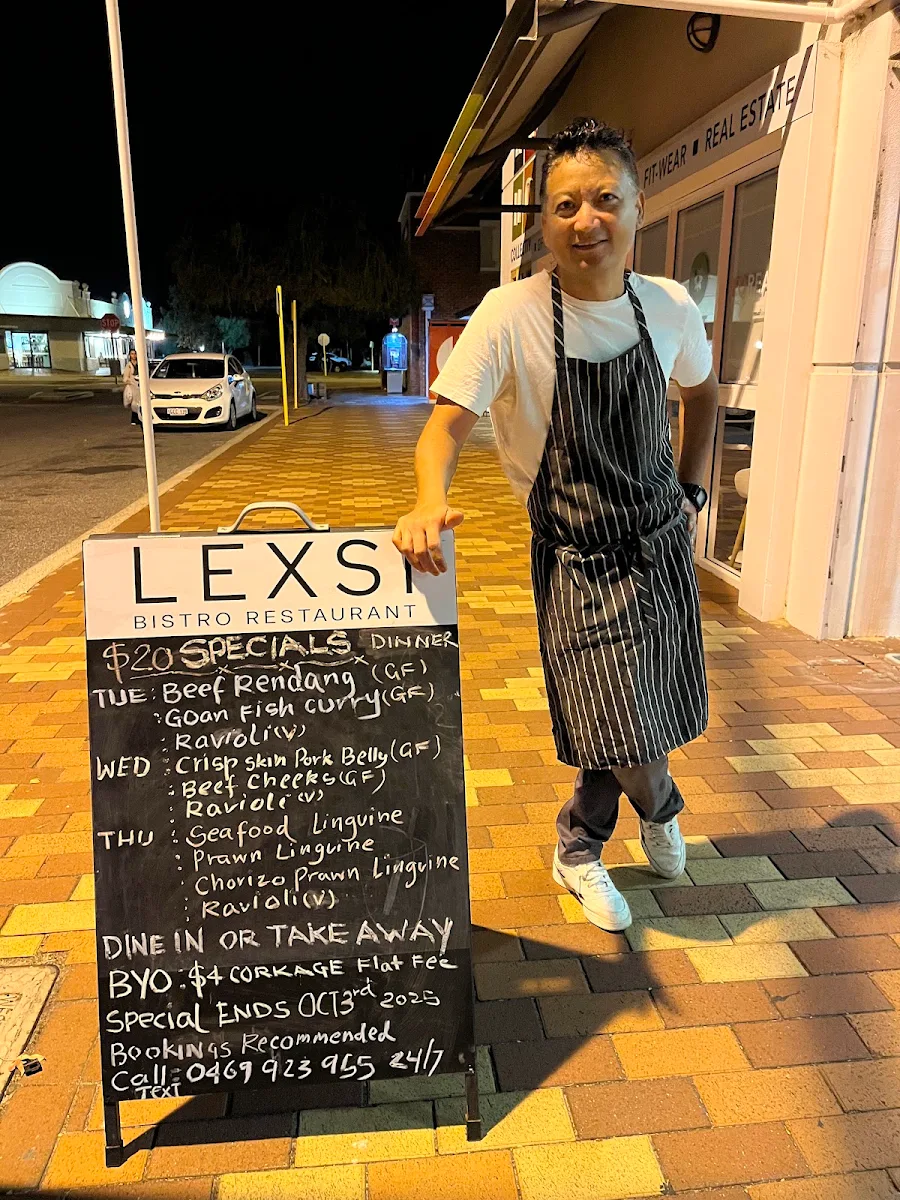 FIT-WEAR ■ REAL ESTATE
STOP
LEXSI
BISTRO RESTAURANT
$20 SPECIALS DINNER
TUE: Beef Rendang (GF)
: Goan Fish curry (GF)
: Ravioli (V)
WED : Crisp skin Pork Belly (GF)
: Beef Cheeks (GF)
: Ravioli (V)
THU : Seafood Linguine
: Prawn Linguine
: Chorizo Prawn Linguine
: Ravioli (V)
DINE IN OR TAKE AWAY
BYO: $4 CORKAGE Flat Fee
Special ENDS OCT 3rd 2025
Bookings Recommended
Call: 0469 923 955 24/7
TEXT